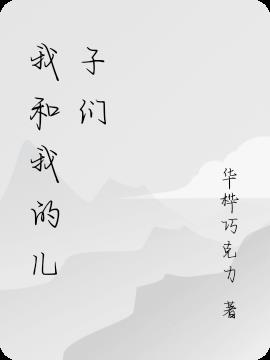 我和我的儿
子们
华桦巧克力 著